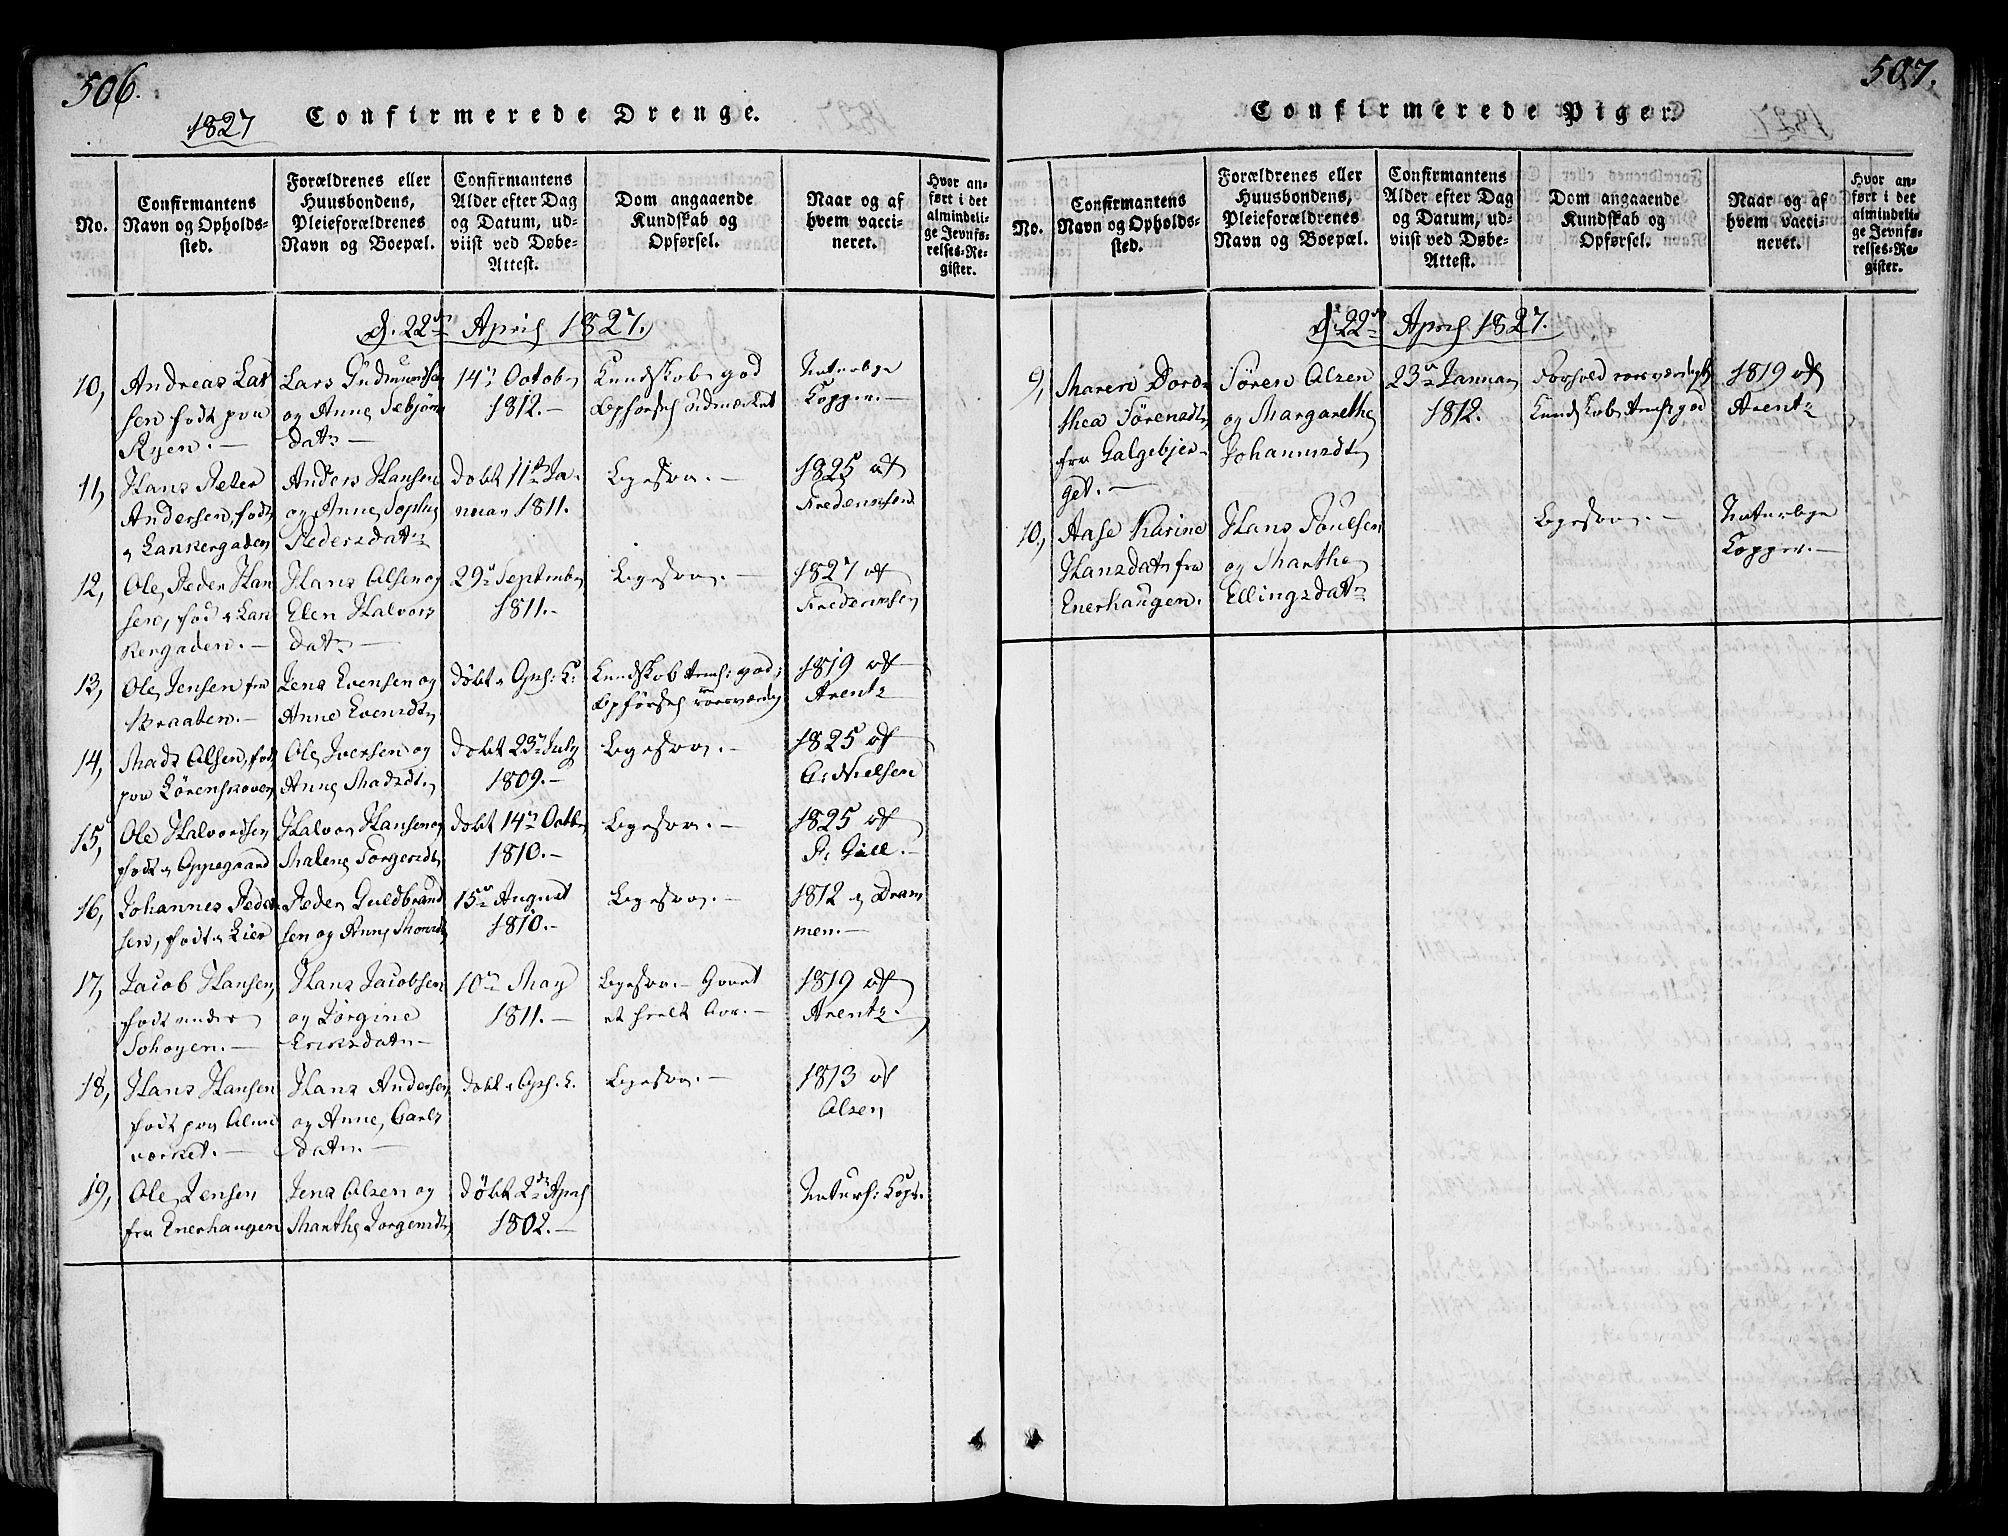 506.
1827 Confirmerede Drenge.
No.
Confirmantens
Navn og Opholds-
sted.
Forældrenes eller
Huusbondens,
Pleieforældrenes
Navn og Boepæl.
Confirmantens
Alder efter Dag
og Datum, ud-
viist ved Døbe-
Attest.
Dom angaaende
Kundskab og
Opførsel.
Naar og af
hvem vacci-
neret.
Hvor an-
ført i det
almindeli-
ge Jevnfø-
relses-Re-
gister.
d. 22de April 1827.
10,
Andreas Lar
sen født paa
Ryen.
Lars Gudmundsen
og Anne Tebjørns
datr
14de Octobr
1812.
Kundskab god
Opførsel udmærket
Naturlige
Kopper.
11,
Hans Peter
Andersen, født
i Lakkergaden
Anders Hansen
og Anne Sophie
Pedersdatr
Døbt 11te Ja-
nuar 1811.
Ligesaa.
1825 af
Fredriksen
12,
Ole Peder Han
sen, fød i Lak
kergaden.
Hans Olsen og
Elen Halvors
datr
29de Septembr
1811.
Ligesaa.
1827 af
Fredriksen
13,
Ole Jensen fra
Braaten.
Jens Evensen og
Anne Evensdtr
Døbt i Opsl: K.
Kundskab teml: god;
Opførsel roesværdig
1819 af
Arentz
14,
Mads Olsen, født
paa Lørenskoven
Ole Iversen og
Anne Madsdtr
Døbt 23de July
1809.
Ligesaa.
1825 af
C. Nielsen
15,
Ole Halvordsen
født i Oppegaard
Halvor Hansen og
Malene Torgersdtr
Døbt 14de Octbr
1810.
Ligesaa.
1825 af
P. Gill.
16,
Johannes Peder
sen, født i Lier
Peder Guldbrand
sen og Anne Monsdtr
15de August
1810.
Ligesaa.
1812 i Dram
men.
17,
Jacob Hansen,
født under
Tøhøyen.
Hans Jacobsen
og Jørgine
Eriksdatr
10de May
1811.
Ligesaa. Gaaet
et heelt Aar.
1819 af
Arentz.
18,
Hans Hansen
født paa Alun
værket.
Hans Andersen
og Anne Carls
datr.
Døbt i Opsl. K.
Ligesaa.
1813 af
Olsen
19,
Ole Jensen
fra Enerhaugen
Jens Olsen og
Marthe Jørgensdtr
Døbt 2den April
1802.
Naturl: Kopr.
507.
Confirmerede Piger.
No.
Confirmantens
Navn og Opholds-
sted.
Forældrenes eller
Huusbondens,
Pleieforældrenes
Navn og Boepæl.
Confirmantens
Alder efter Dag
og Datum, ud-
viist ved Døbe-
Attest.
Dom angaaende
Kundskab og
Opførsel.
Naar og af
hvem vacci-
neret.
Hvor an-
ført i det
almindeli-
ge Jevnfø-
relses-Re-
gister.
d. 22de April 1827.
9,
Maren Dor-
thea Sørensdtr
fra Galgebjer-
get.
Søren Olsen
og Margarethe
Johannsdtr
23de Januar
1812.
Forhold roesværdigt
Kundskab temlig god
1819 af
Arentz
10,
Aase Karine
Hansdatr fra
Enerhaugen.
Hans Poulsen
og Marthe
Ellingsdatr
Ligesaa.
Naturlige
Kopper.